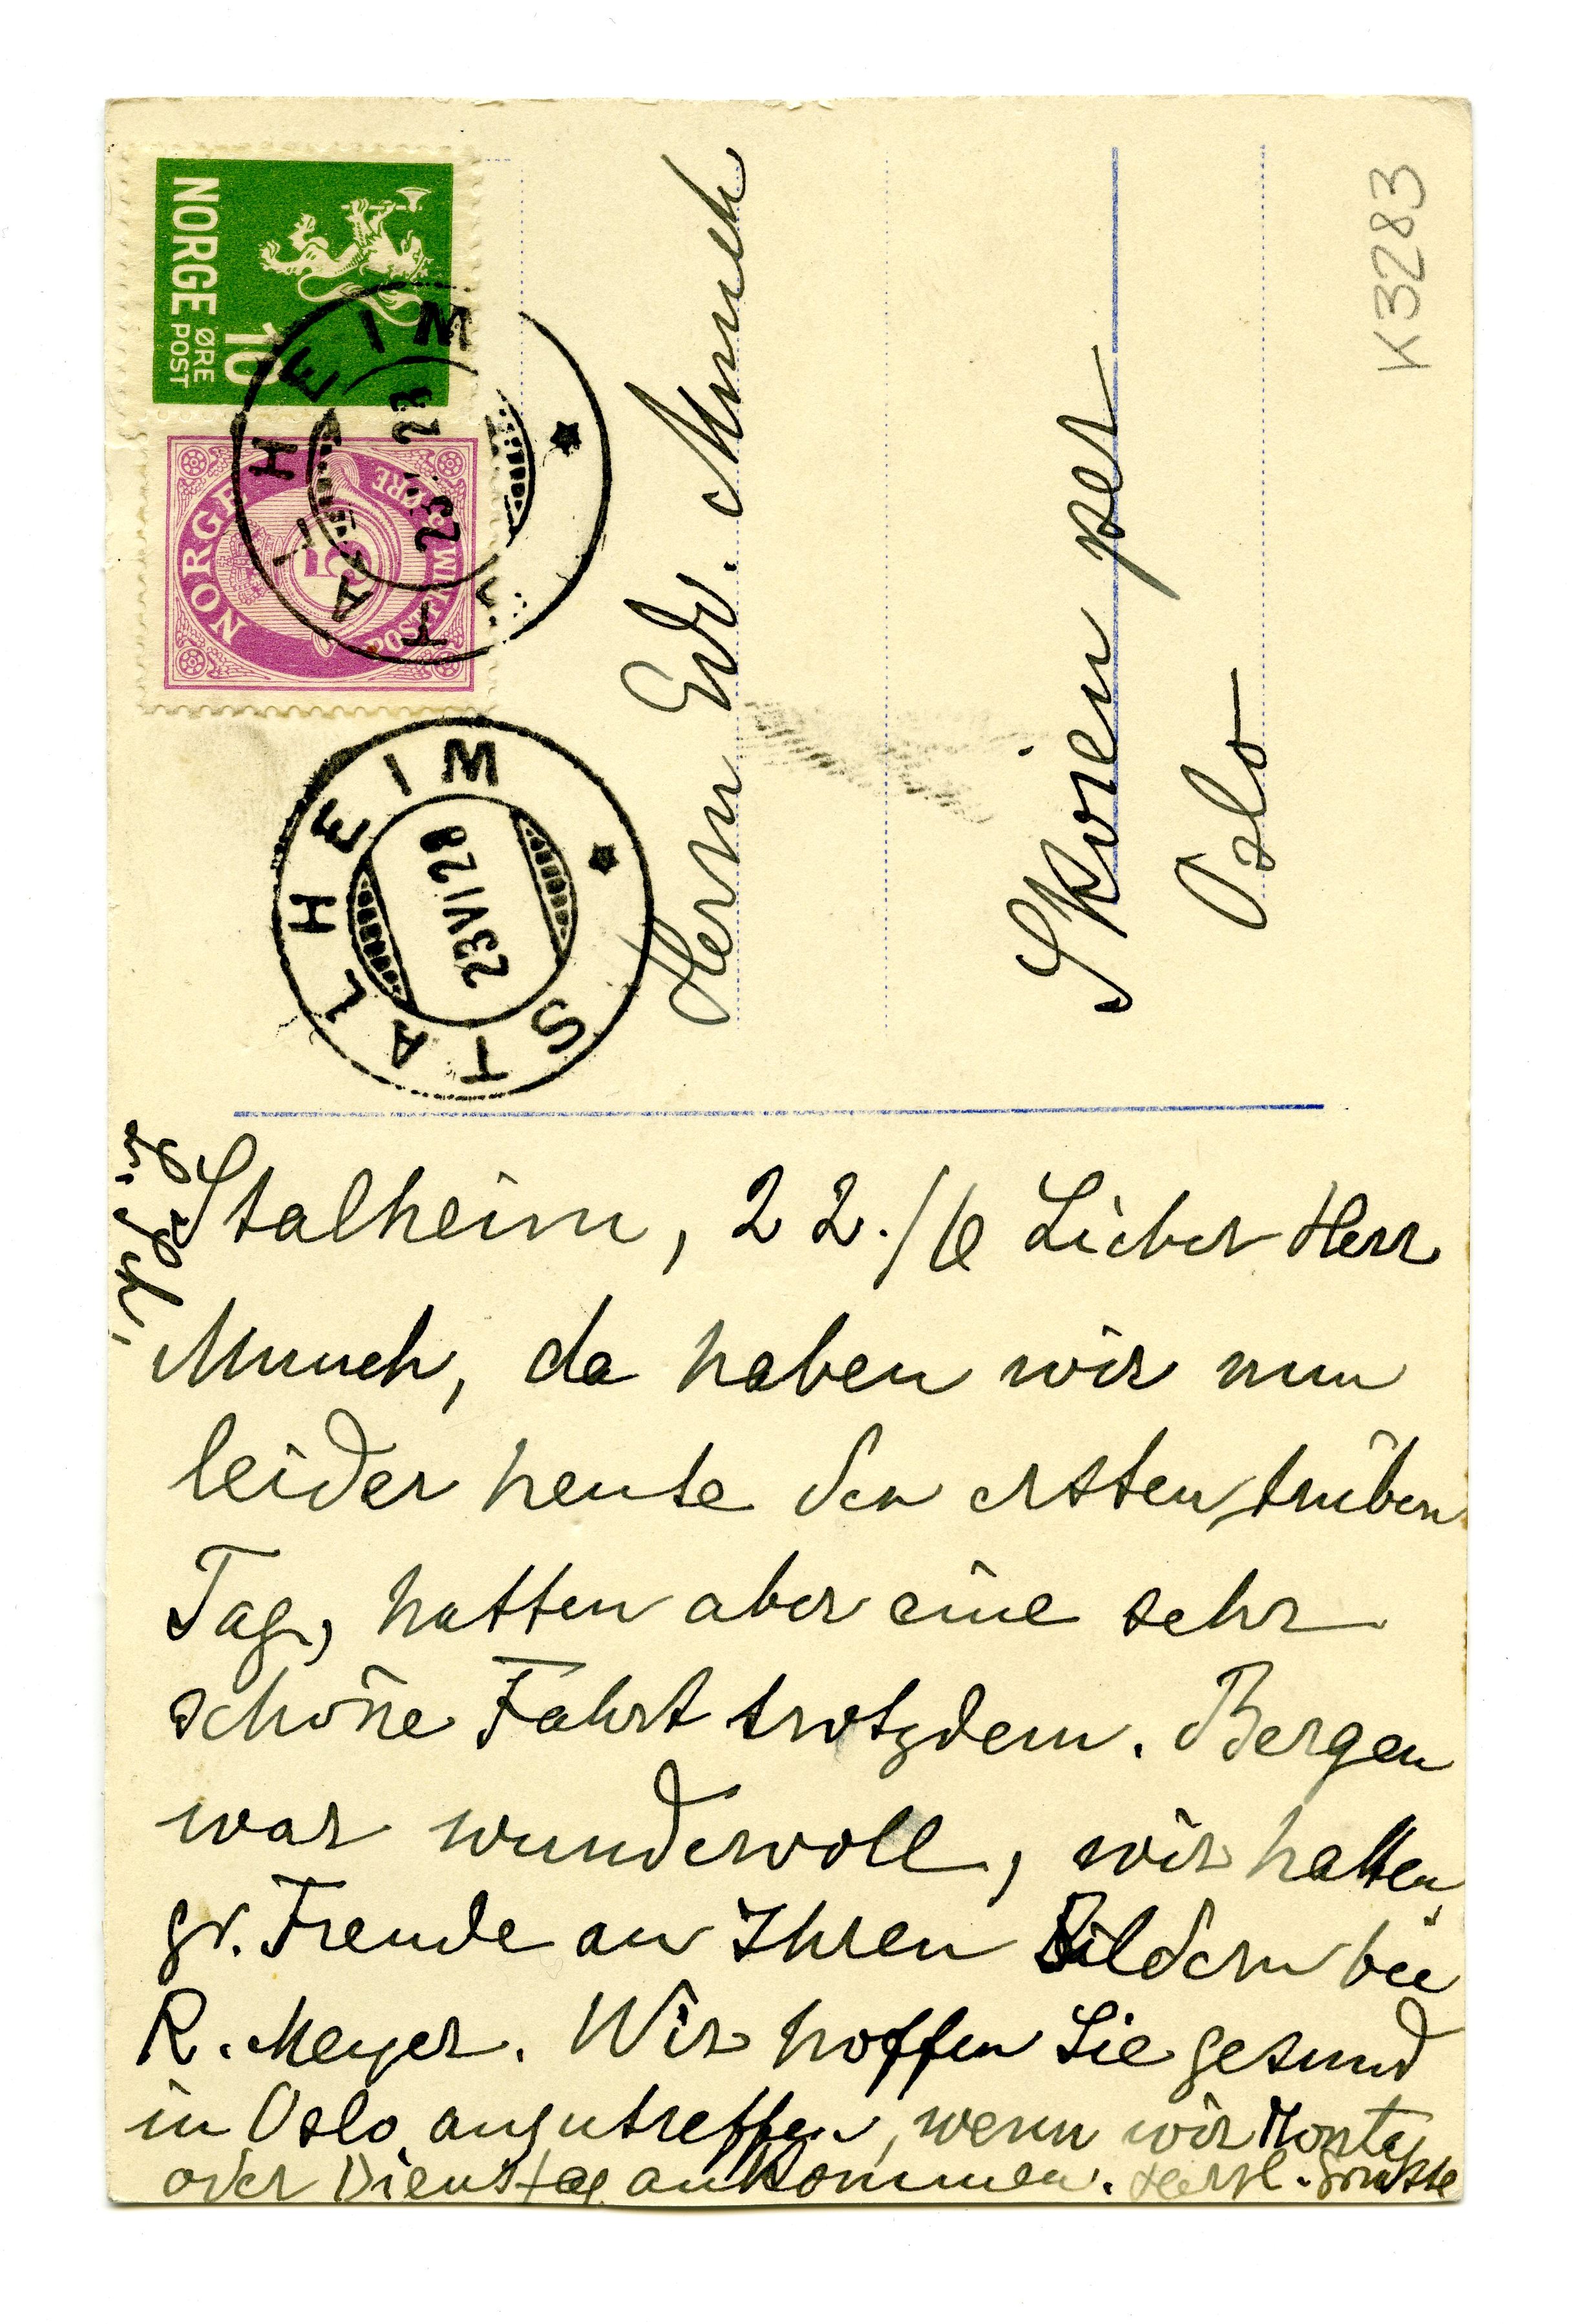 NORGE
10
ØRE
POST
NORGE
5
STALHEIM
23 VI 28
STALHEIM
23 VI 28
K3283
Herrn Edv. Munch
Skøien per
Oslo
Stalheim, 22./6 Lieber Herr
Munch, da haben wir nun
leider heute den ersten trüben
Tag, hatten aber eine sehr
schöne Fahrt trotzdem. Bergen
war wundervoll, wir hatten
gr. Freude an Ihren Bildern bei
R. Meyer. Wir hoffen Sie gesund
in Oslo anzutreffen, wenn wir Montag
oder Dienstag ankommen. Herzl. Grüsse